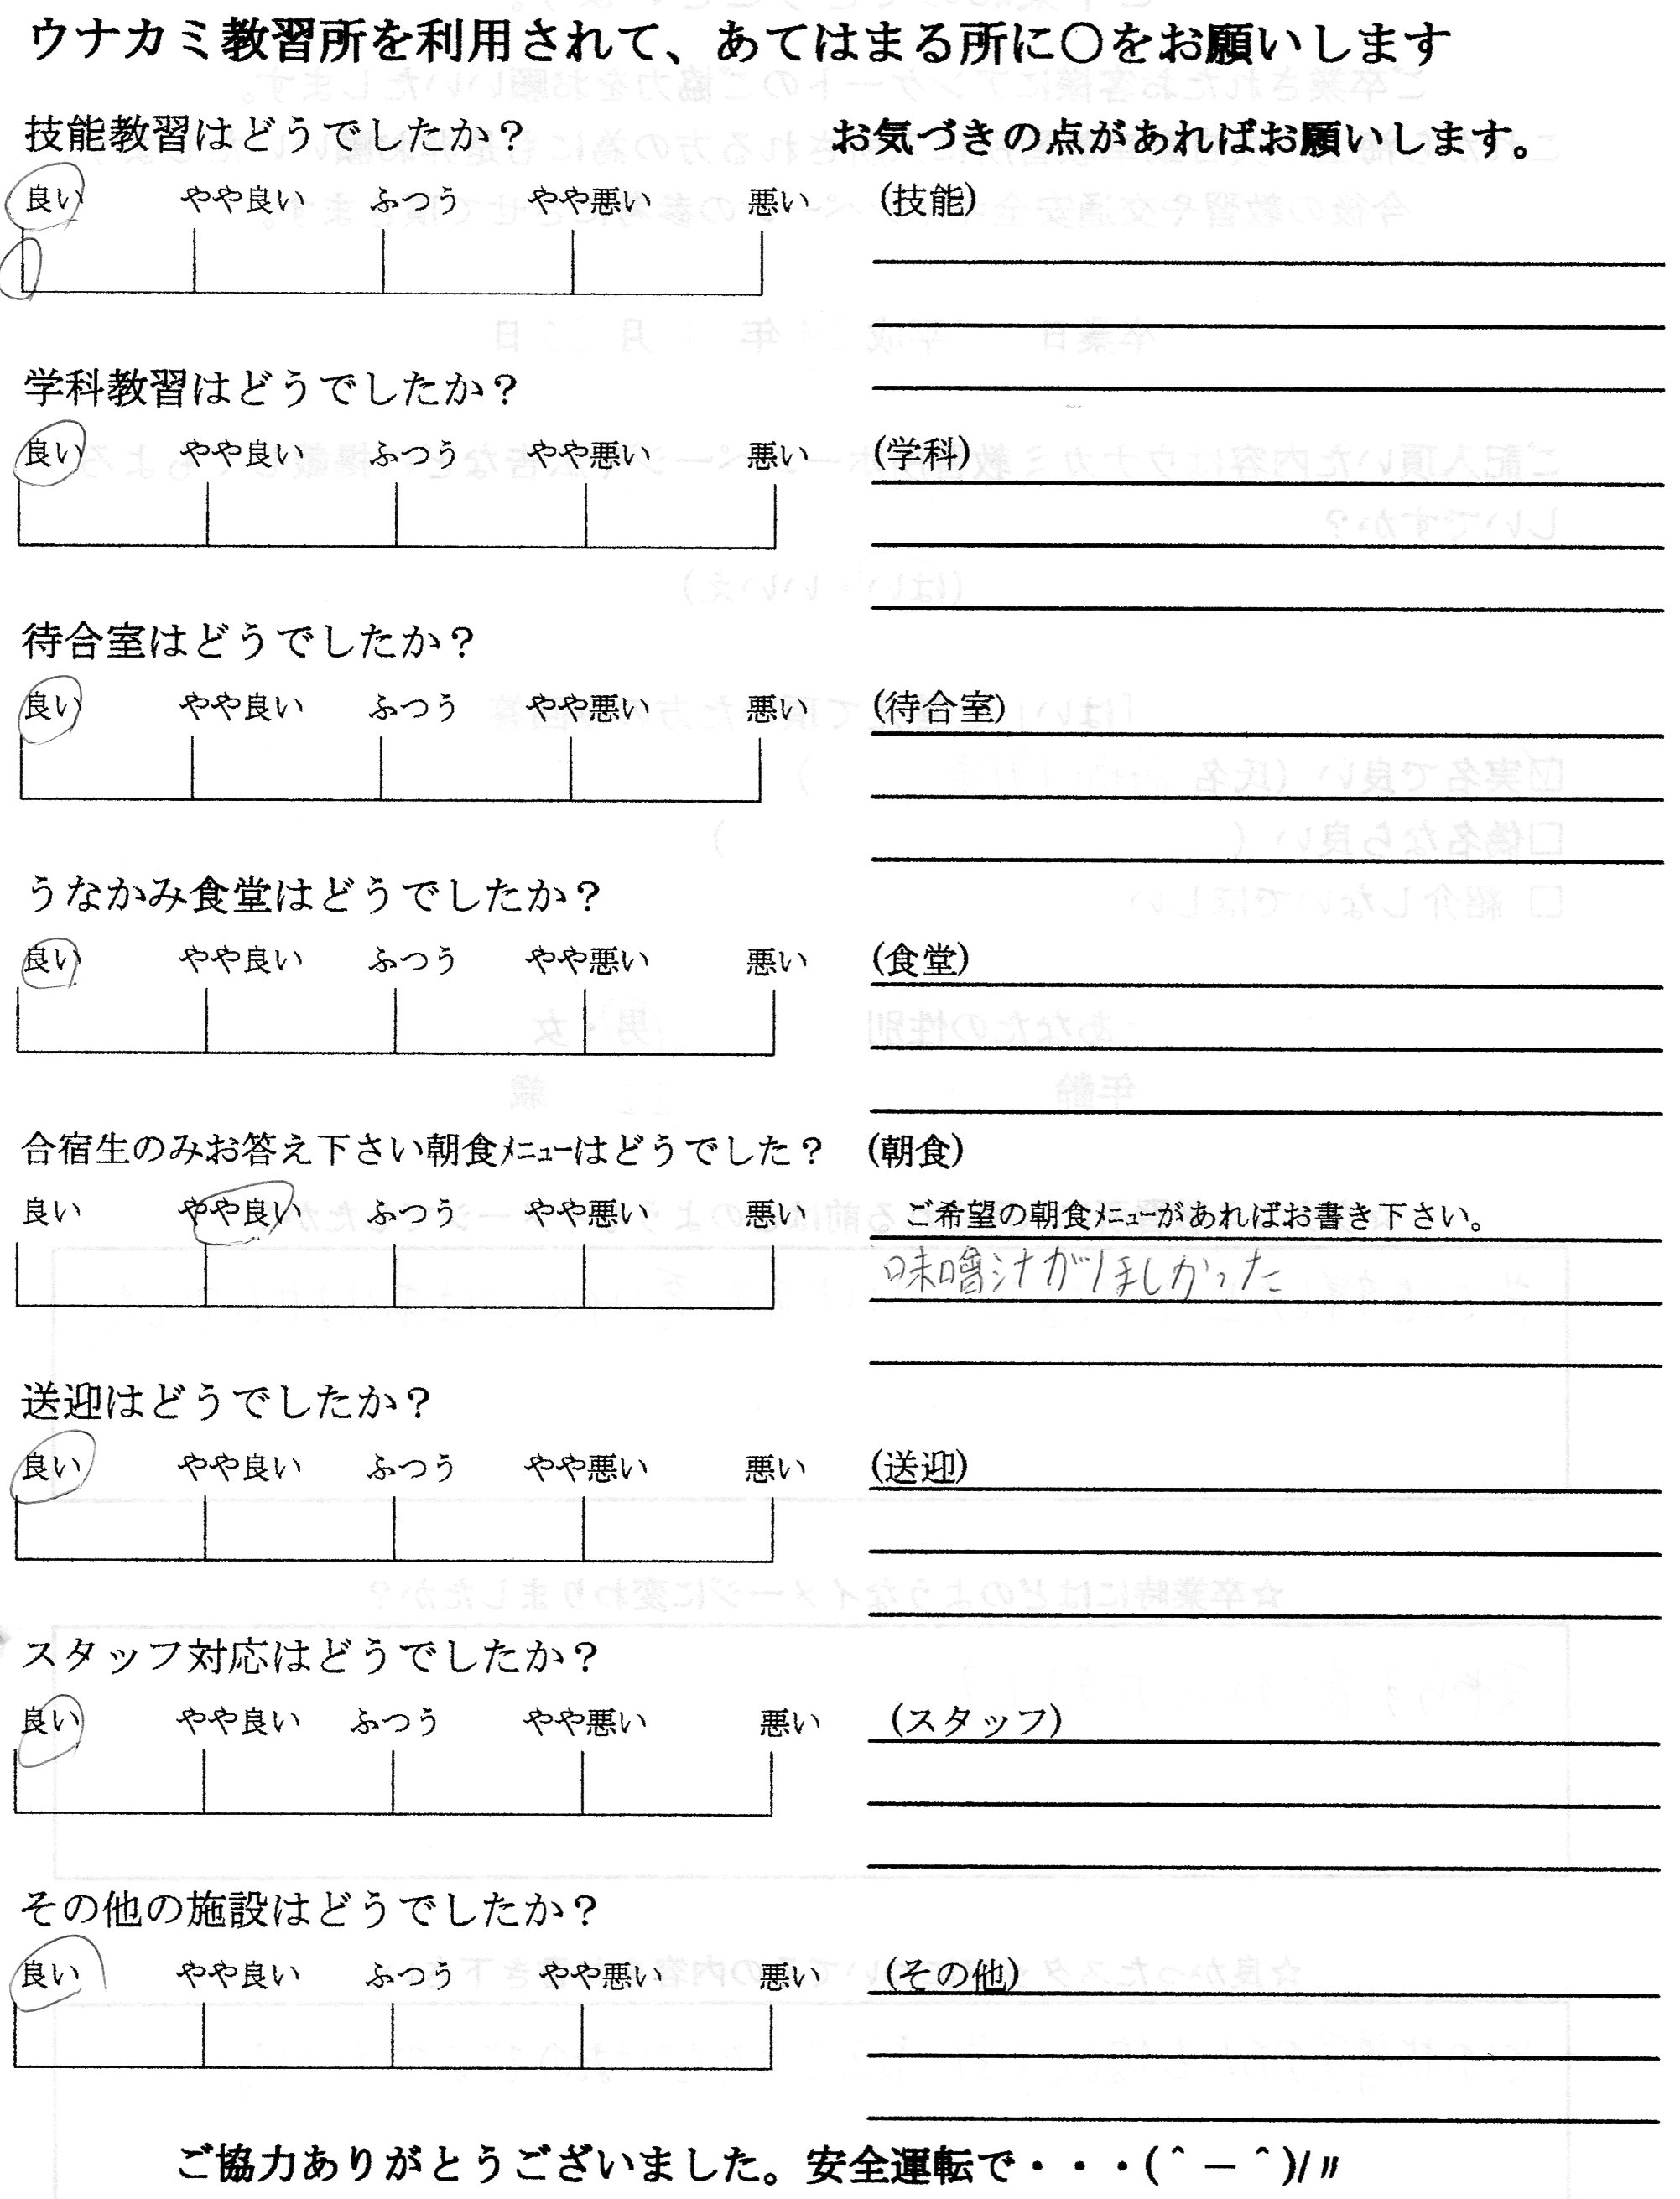 ウナカミ教習所を利用されて、あてはまる所に〇をお願いします
技能教習はどうでしたか？ お気づきの点があればお願いします。
良い やや良い ふつう やや悪い 悪い (技能)
学科教習はどうでしたか？
良い やや良い ふつう やや悪い 悪い (学科)
待合室はどうでしたか？
良い やや良い ふつう やや悪い 悪い (待合室)
うなかみ食堂はどうでしたか？
良い やや良い ふつう やや悪い 悪い (食堂)
合宿生のみお答え下さい朝食ﾒﾆｭｰはどうでした？ (朝食)
良い やや良い ふつう やや悪い 悪い ご希望の朝食ﾒﾆｭｰがあればお書き下さい。
味噌汁がほしかった
送迎はどうでしたか？
良い やや良い ふつう やや悪い 悪い (送迎)
スタッフ対応はどうでしたか？
良い やや良い ふつう やや悪い 悪い (スタッフ)
その他の施設はどうでしたか？
良い やや良い ふつう やや悪い 悪い (その他)
ご協力ありがとうございました。安全運転で・・・(＾－＾)/〃